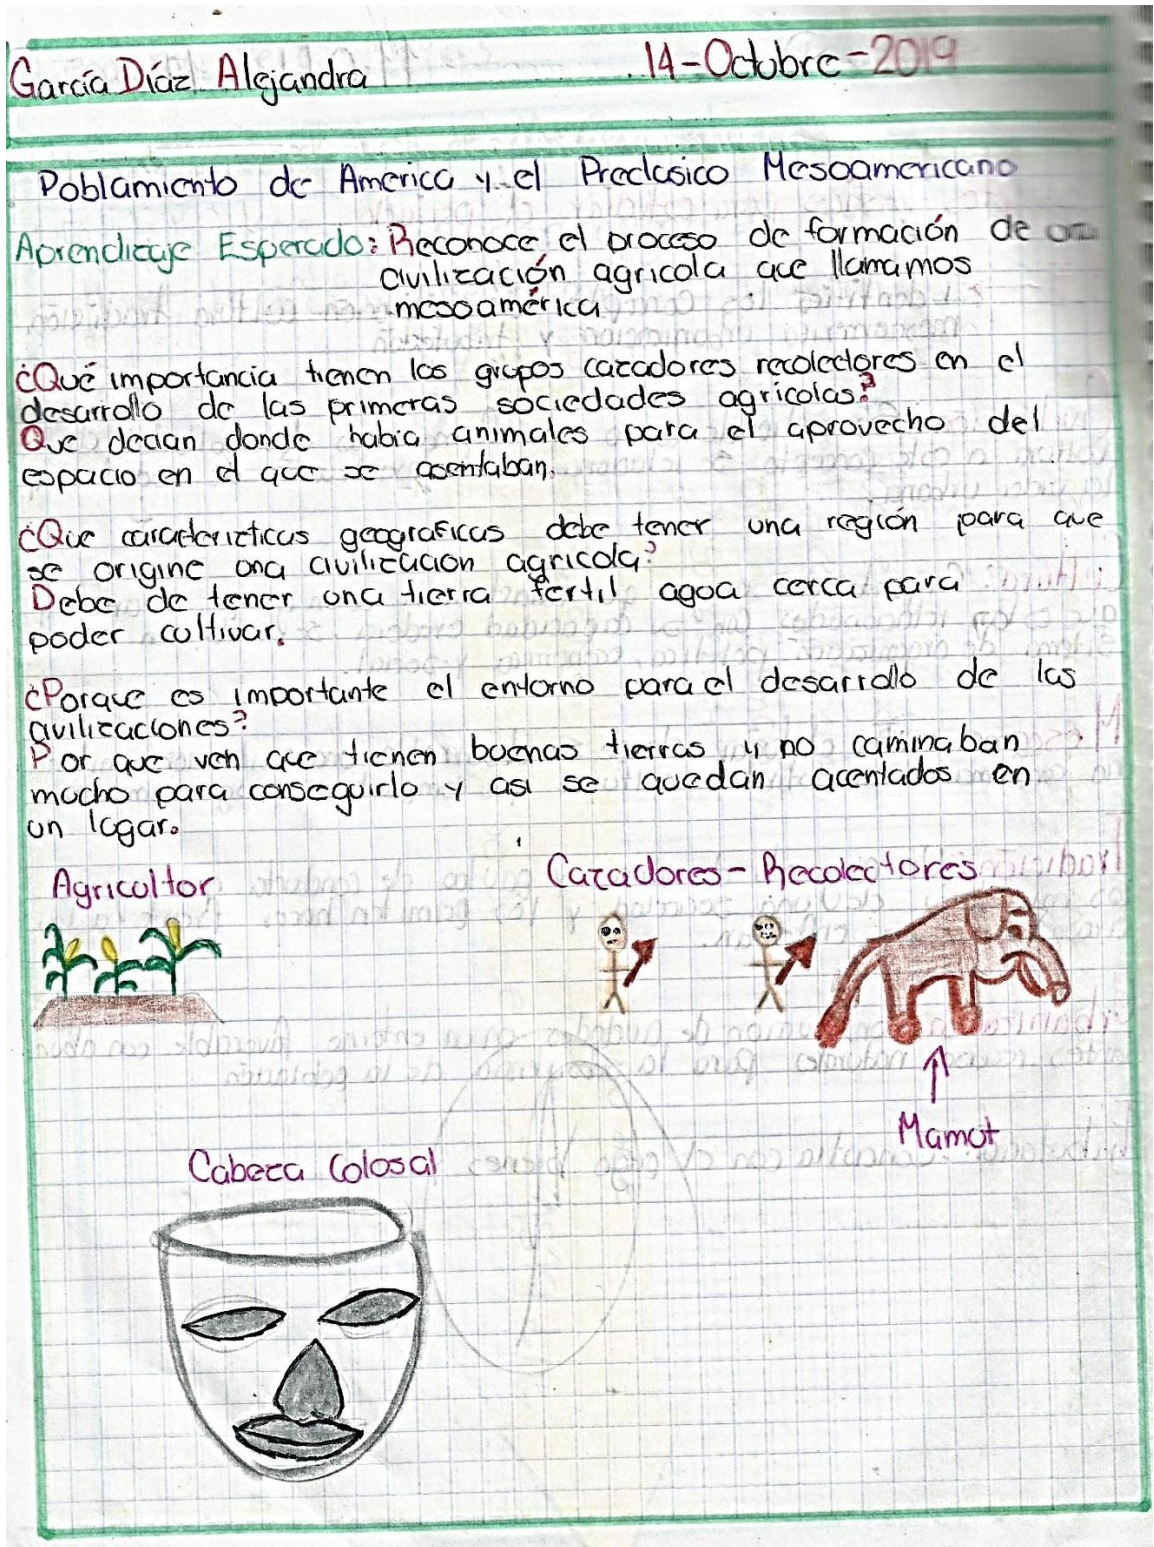 García Díaz Alejandra
14-Octubre-2019
Poblamiento de America y el Preclasico Mesoamericano
Aprendizaje Esperado: Reconoce el proceso de formación de
civilización agricola que llamamos
mesoamérica
¿Qué importancia tienen los grupos cazadores recolectores en el
desarrollo de las primeras sociedades agrícolas?
Que decian donde habia animales para el aprovecho del
espacio en el que se asentaban.
¿Que caracteristicas geograficas debe tener una región para que
se origine una civilizacion agricola?
Debe de tener una tierra fertil agua cerca para
poder cultivar.
¿Porque es importante el entorno para el desarrollo de las
civilizaciones?
Por que ven que tienen buenas tierras y no caminaban
mucho para conseguirlo y asi se quedan acentados en
un lugar.
Agricultor
Cazadores-Recolectores
Mamut
Cabeza Colosal